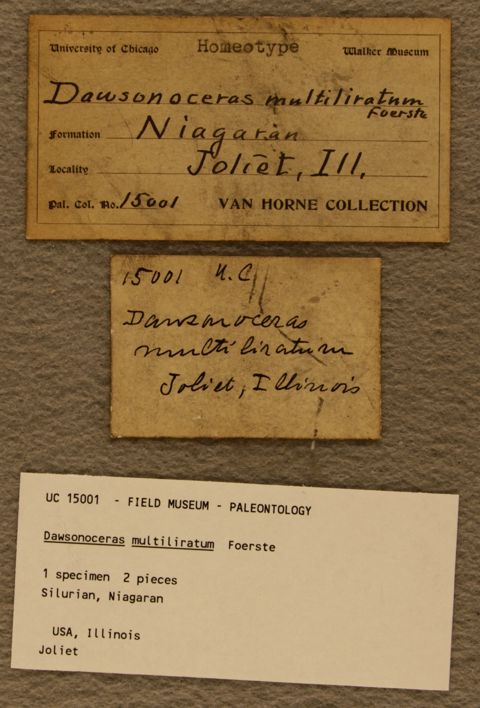 University of Chicago Homeotype Walker Museum
Dawsonoceras multiliratum
Foerste
Formation Niagaran
Locality Joliet, Ill.
Pal. Col. No. 15001 VAN HORNE COLLECTION
15001 U.C
Dawsonoceras
multiliratum
Joliet, Illinois
UC 15001 - FIELD MUSEUM - PALEONTOLOGY
Dawsonoceras multiliratum Foerste
1 specimen 2 pieces
Silurian, Niagaran
USA, Illinois
Joliet